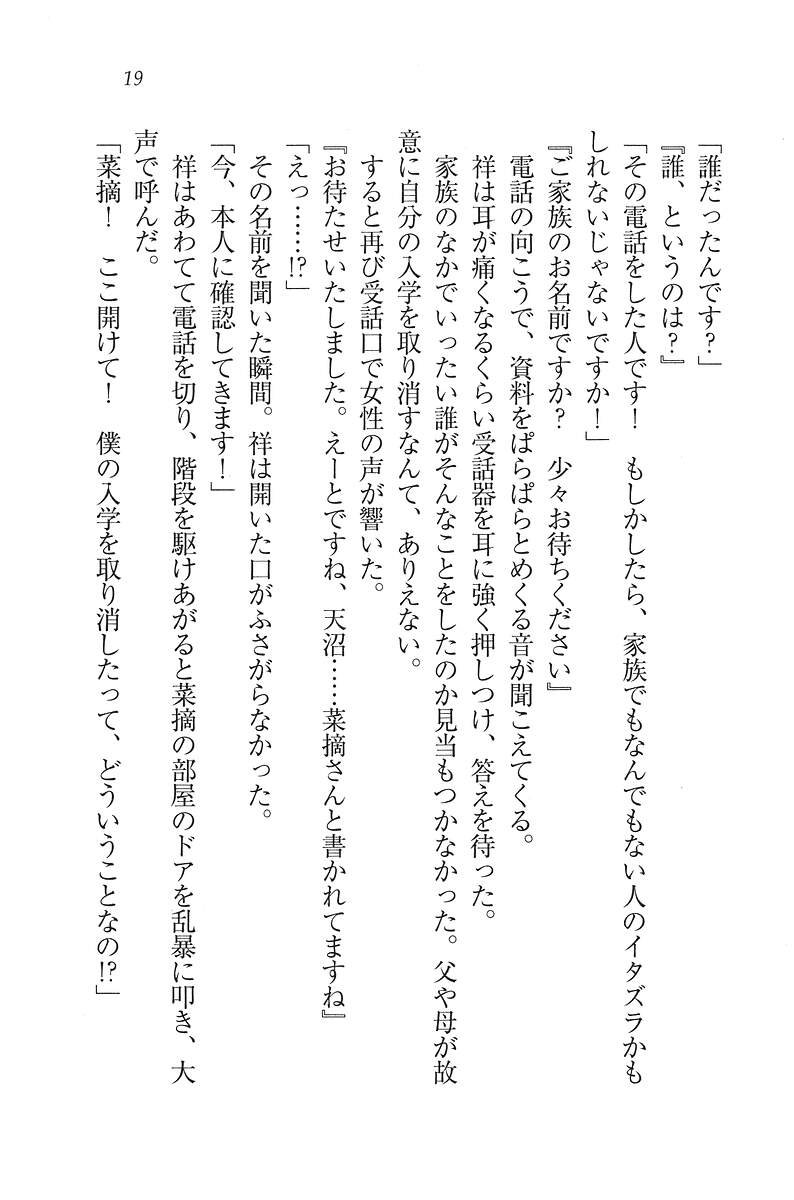 19
「誰だったんです?」
『誰、というのは?』
「その電話をした人です! もしかしたら、家族でもなんでもない人のイタズラかも
しれないじゃないですか!」
『ご家族のお名前ですか? 少々お待ちください』
電話の向こうで、資料をぱらぱらとめくる音が聞こえてくる。
祥は耳が痛くなるくらい受話器を耳に強く押しつけ、答えを待った。
家族のなかでいったい誰がそんなことをしたのか見当もつかなかった。父や母が故
意に自分の入学を取り消すなんて、ありえない。
すると再び受話口で女性の声が響いた。
『お待たせいたしました。えーとですね、天沼……菜摘さんと書かれてますね』
「えっ……!?」
その名前を聞いた瞬間。祥は開いた口がふさがらなかった。
「今、本人に確認してきます!」
祥はあわてて電話を切り、階段を駆けあがると菜摘の部屋のドアを乱暴に叩き、大
声で呼んだ。
「菜摘! ここ開けて! 僕の入学を取り消したって、どういうことなの!?」